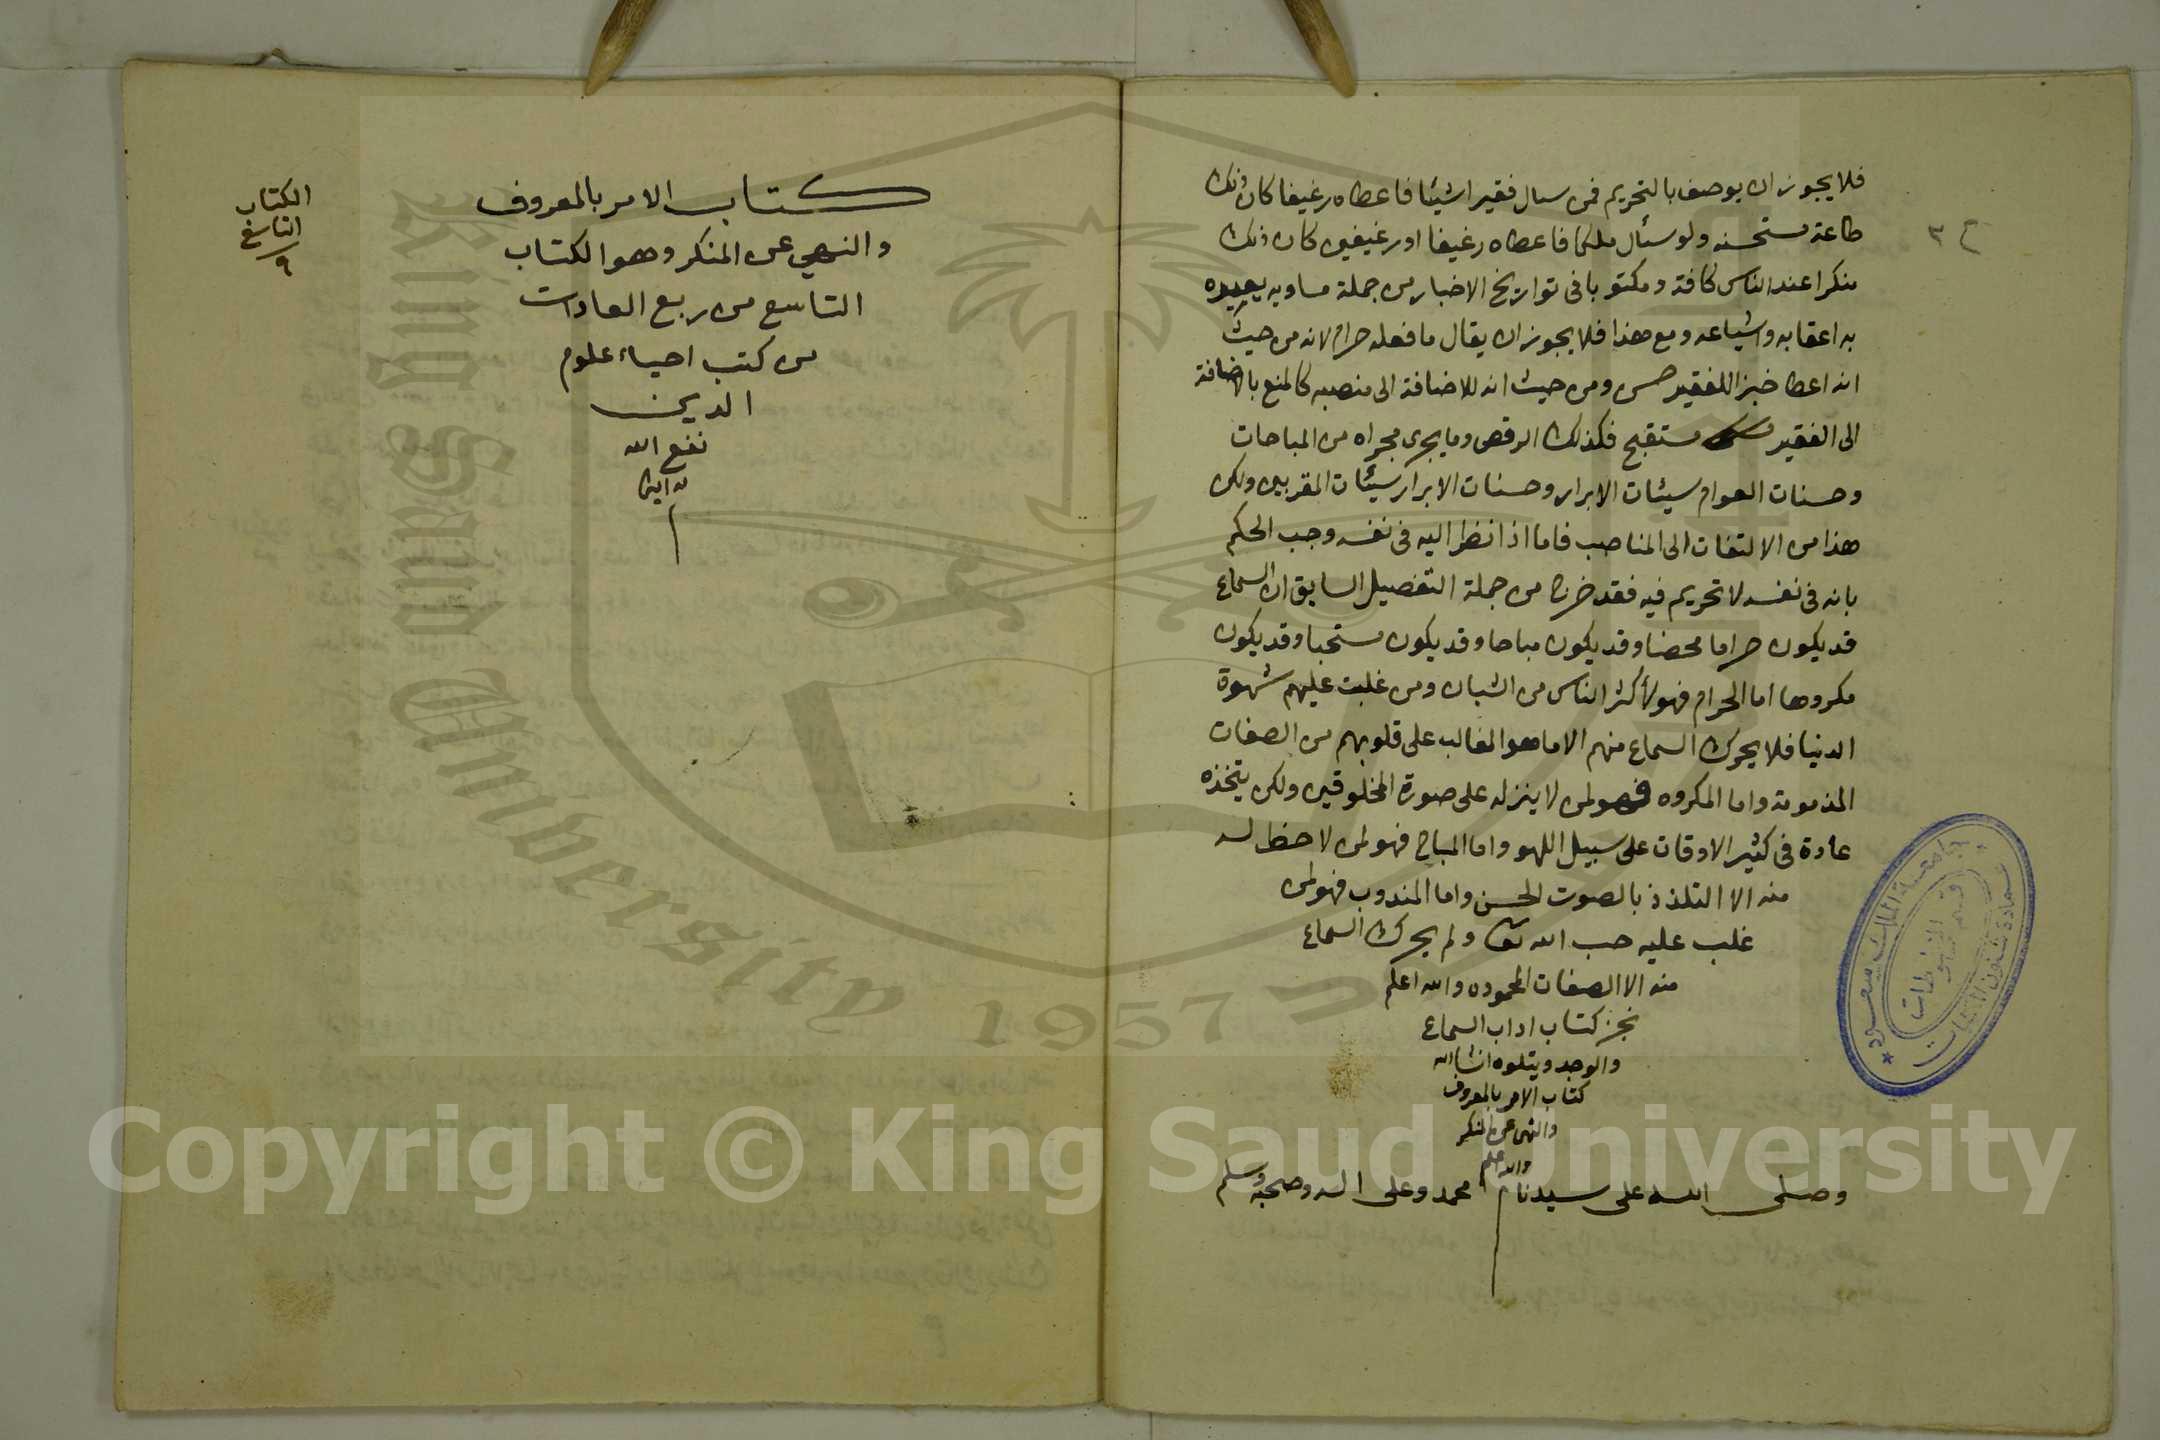 فلا يجوز ان يوصف بالتحريم فمن سال فقيرا شيئا فاعطاه رغيفا كان ذلك
طاعة مستحسنه ولو سئال ملكا فاعطاه رغيفا او رغيفين كان ذلك
منكرا عند الناس كافة ومكتوبا فى تواريخ الاخبار من جملة مساويه يعيره
به اعقابه واشياعه ومع هذا فلا يجوز ان يقال ما فعله حرام لانه من حيث
انه اعطا خبزا للفقير حسن ومن حيث انه للاضافة الى منصبه كالمنع بالاضافة
الى الفقير مستقبح فكذلك الرقص وما يجرى مجراه من المباحات
وحسنات العوام سيئات الابرار وحسنات الابرار سيئات المقربين ولكن
هذا من الالتفات الى المناصب فاما اذا نظر اليه فى نفسه وجب الحكم
بانه فى نفسه لا تحريم فيه فقد خرج من جملة التفصيل السابق ان السماع
قد يكون حراما محضا وقد يكون مباحا وقد يكون مستحبا وقد يكون
مكروها اما الحرام فهو لأكثر الناس من الشبان ومن غلبت عليهم شهوة
الدنيا فلا يحرك السماع منهم الا ما هو الغالب على قلوبهم من الصفات
المذمومة واما المكروه فهو لمن لا ينزله على صورة المخلوقين ولكن يتخذه
عادة فى كثير الاوقات على سبيل اللهو واما المباح فهو لمن لا حظ له
منه الا التلذذ بالصوت الحسن واما المندوب فهو لمن
غلب عليه حب الله تعا ولم يحرك السماع
منه الا الصفات المحموده والله اعلم
نجز كتاب اداب السماع
والوجد ويتلوه انشا الله
كتاب الامر بالمعروف
والنهى عن المنكر
والله اعلم
وصلى الله على سيدنا محمد وعلى اله وصحبه وسلم
ح ٣
جامعة الملك سعود
عمادة شئون المكتبات
قسم المخطوطات
كتاب الامر بالمعروف
والنهي عن المنكر وهو الكتاب
التاسع من ربع العادات
من كتب احياء علوم
الدين
نفع الله
به امين
م
الكتاب
التاسع
٩
King Saud University
1957
Copyright © King Saud University